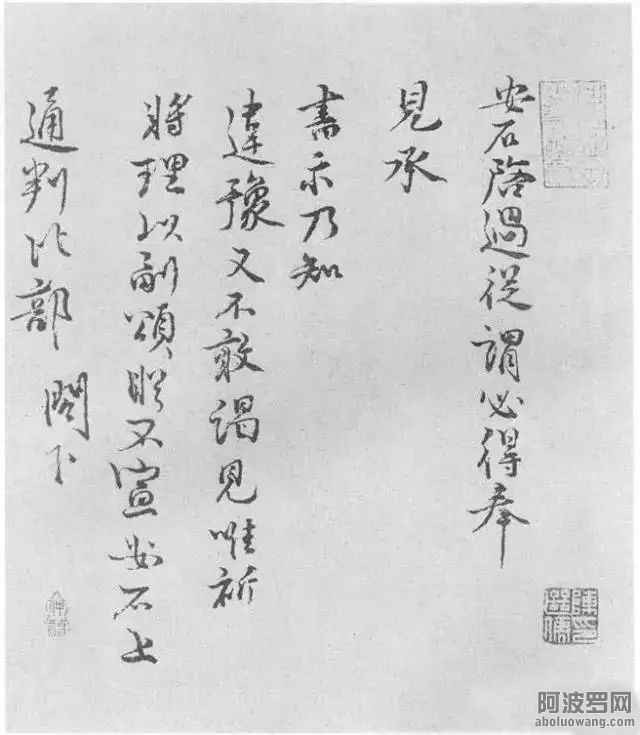 安石啓過從謂必得奉
見承
書示乃知
違豫又不敢謁見唯祈
將理以副頌咏不宣安石上
通判比部 閣下
阿波罗网
aboluowang.com